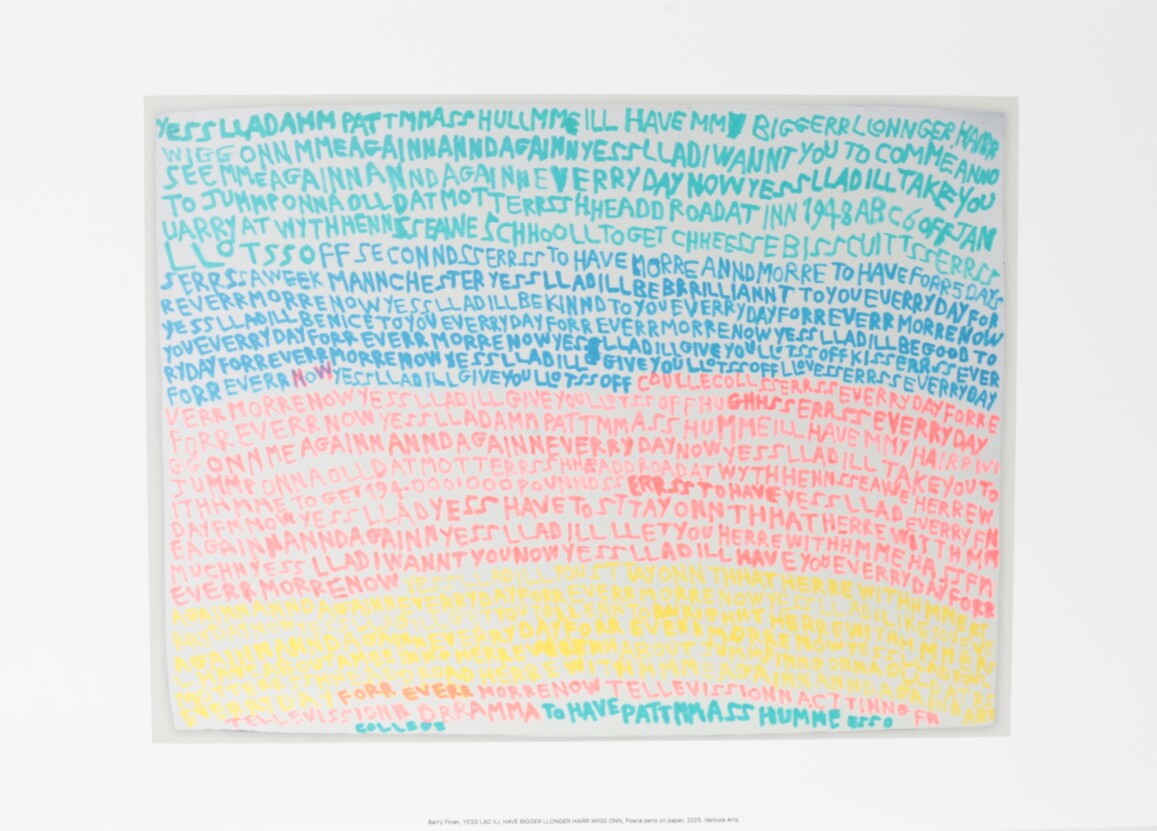 YESS LLADAMM PATTMMASS HULLMME ILL HAVE MMY BIGGERR LLONNGER HAIRR
WIGG ONN MMEAGAINNANNDAGAINNYESSLLADIWANNT YOU TO COMMEANND
SEEMMEAGAINNANNDAGAINNEVERRYDAYNOWYESSLLADILLTAKEYOU
TO JUMMPONNAOLLDATMOTTERRSSHHEADDROADAT INN 1948 ABC6OFFJAN
UARRYAT WYTHHENNSSEAWE SCHHOOLLTOGET CHHEESSEBISSCUITTSSERRSS
LLOTSSOFFSECONNDSSERRSS TO HAVE MORREANNDMORRE TO HAVEFORR5DAYS
SERRSSAWEEK MANNCHESTERYESSLLADILLBEBBRILLIANNT TOYOUEVERRYDAYFOR
REVERRMORRENOWYESSLLADILLBEKINNDTOYOUEVERRYDAYFORREVERRMORRENOW
YESSLLADILLBENICETOYOUEVERRYDAYFORREVERRMORRENOWYESSLLADILLBEGOODTO
YOUEVERRYDAYFORREVERRMORRENOWYESSLLADILLGIVEYOULLOTSSOFFKISSERRSSEVER
RYDAYFORREVERRMORRENOWYESSLLADILLGIVEYOULLOTSSOFFLLOVESSERRSSEVERRYDAY
FORREVERRNOWYESSLLADILLGIVEYOULLOTSSOFF CDULLECOLLSSERRSSEVERRYDAYFORRE
VERRMORRENOWYESSLLADILLGIVEYOULLOTSSOFFHUGHHSSERRSSEVERRYDAY
FORREVERRNOWYESSLLADAMMPATTMMASSHUMMEILL HAVEMMYHAIRRWI
GGONNMEAGAINNANNDAGAINNEVERRYDAYNOWYESSLLADILL TAKEYOUTO
JUMMPONNAOLLDATMOTTERRSSHHEADDROADAT WYTHHENNSSEAWEHERREW
ITHHMMETOGET194.0001000POUNNDSSERRSSTOHAVEYESSLLADEVERRYFN
DAYFMNOWYESSLLADYESS HAVETOSTTAYONNTHHATHERREWITTHMM
EAGAINNANNDAGAINNYESSLLADILLLLETYOUHERREWITHHMMEHASSFM
MUCHNYESSLLADIWANNTYOUNOWYESSLLADILLHAVEYOUEVERRYDAYFORR
EVERRMORRENOW YESSLLADILLYOUSTTAYONNTHHATHERREWITHHMME
AGAINNANNDAGAINNEVERRYDAYFORREVERRMORRENOWYESSLLADILIKE
HERREWITHHMME
AGAINNANNDAGAINNEVERRYDAYFORREVERRMORRENOWYESSLLADFOR
HERRE JUMMPINNGONNAOLLDAT
HERREWITHHMMEAGAINNANNDAGAINN
EVERRYDAY FORR EVERR MORRENOW TELLEVISSIONNACTTINNG FN
TELLEVISSIONN DRRAMMA TO HAVE PATTMMASS HUMME ESSO
COLLEDE
Barry Finan, YESS LAD ILL HAVE BIGGER LLONGER HAIRR WIGG ONN, Posca pens on paper, 2025, Venture Arts